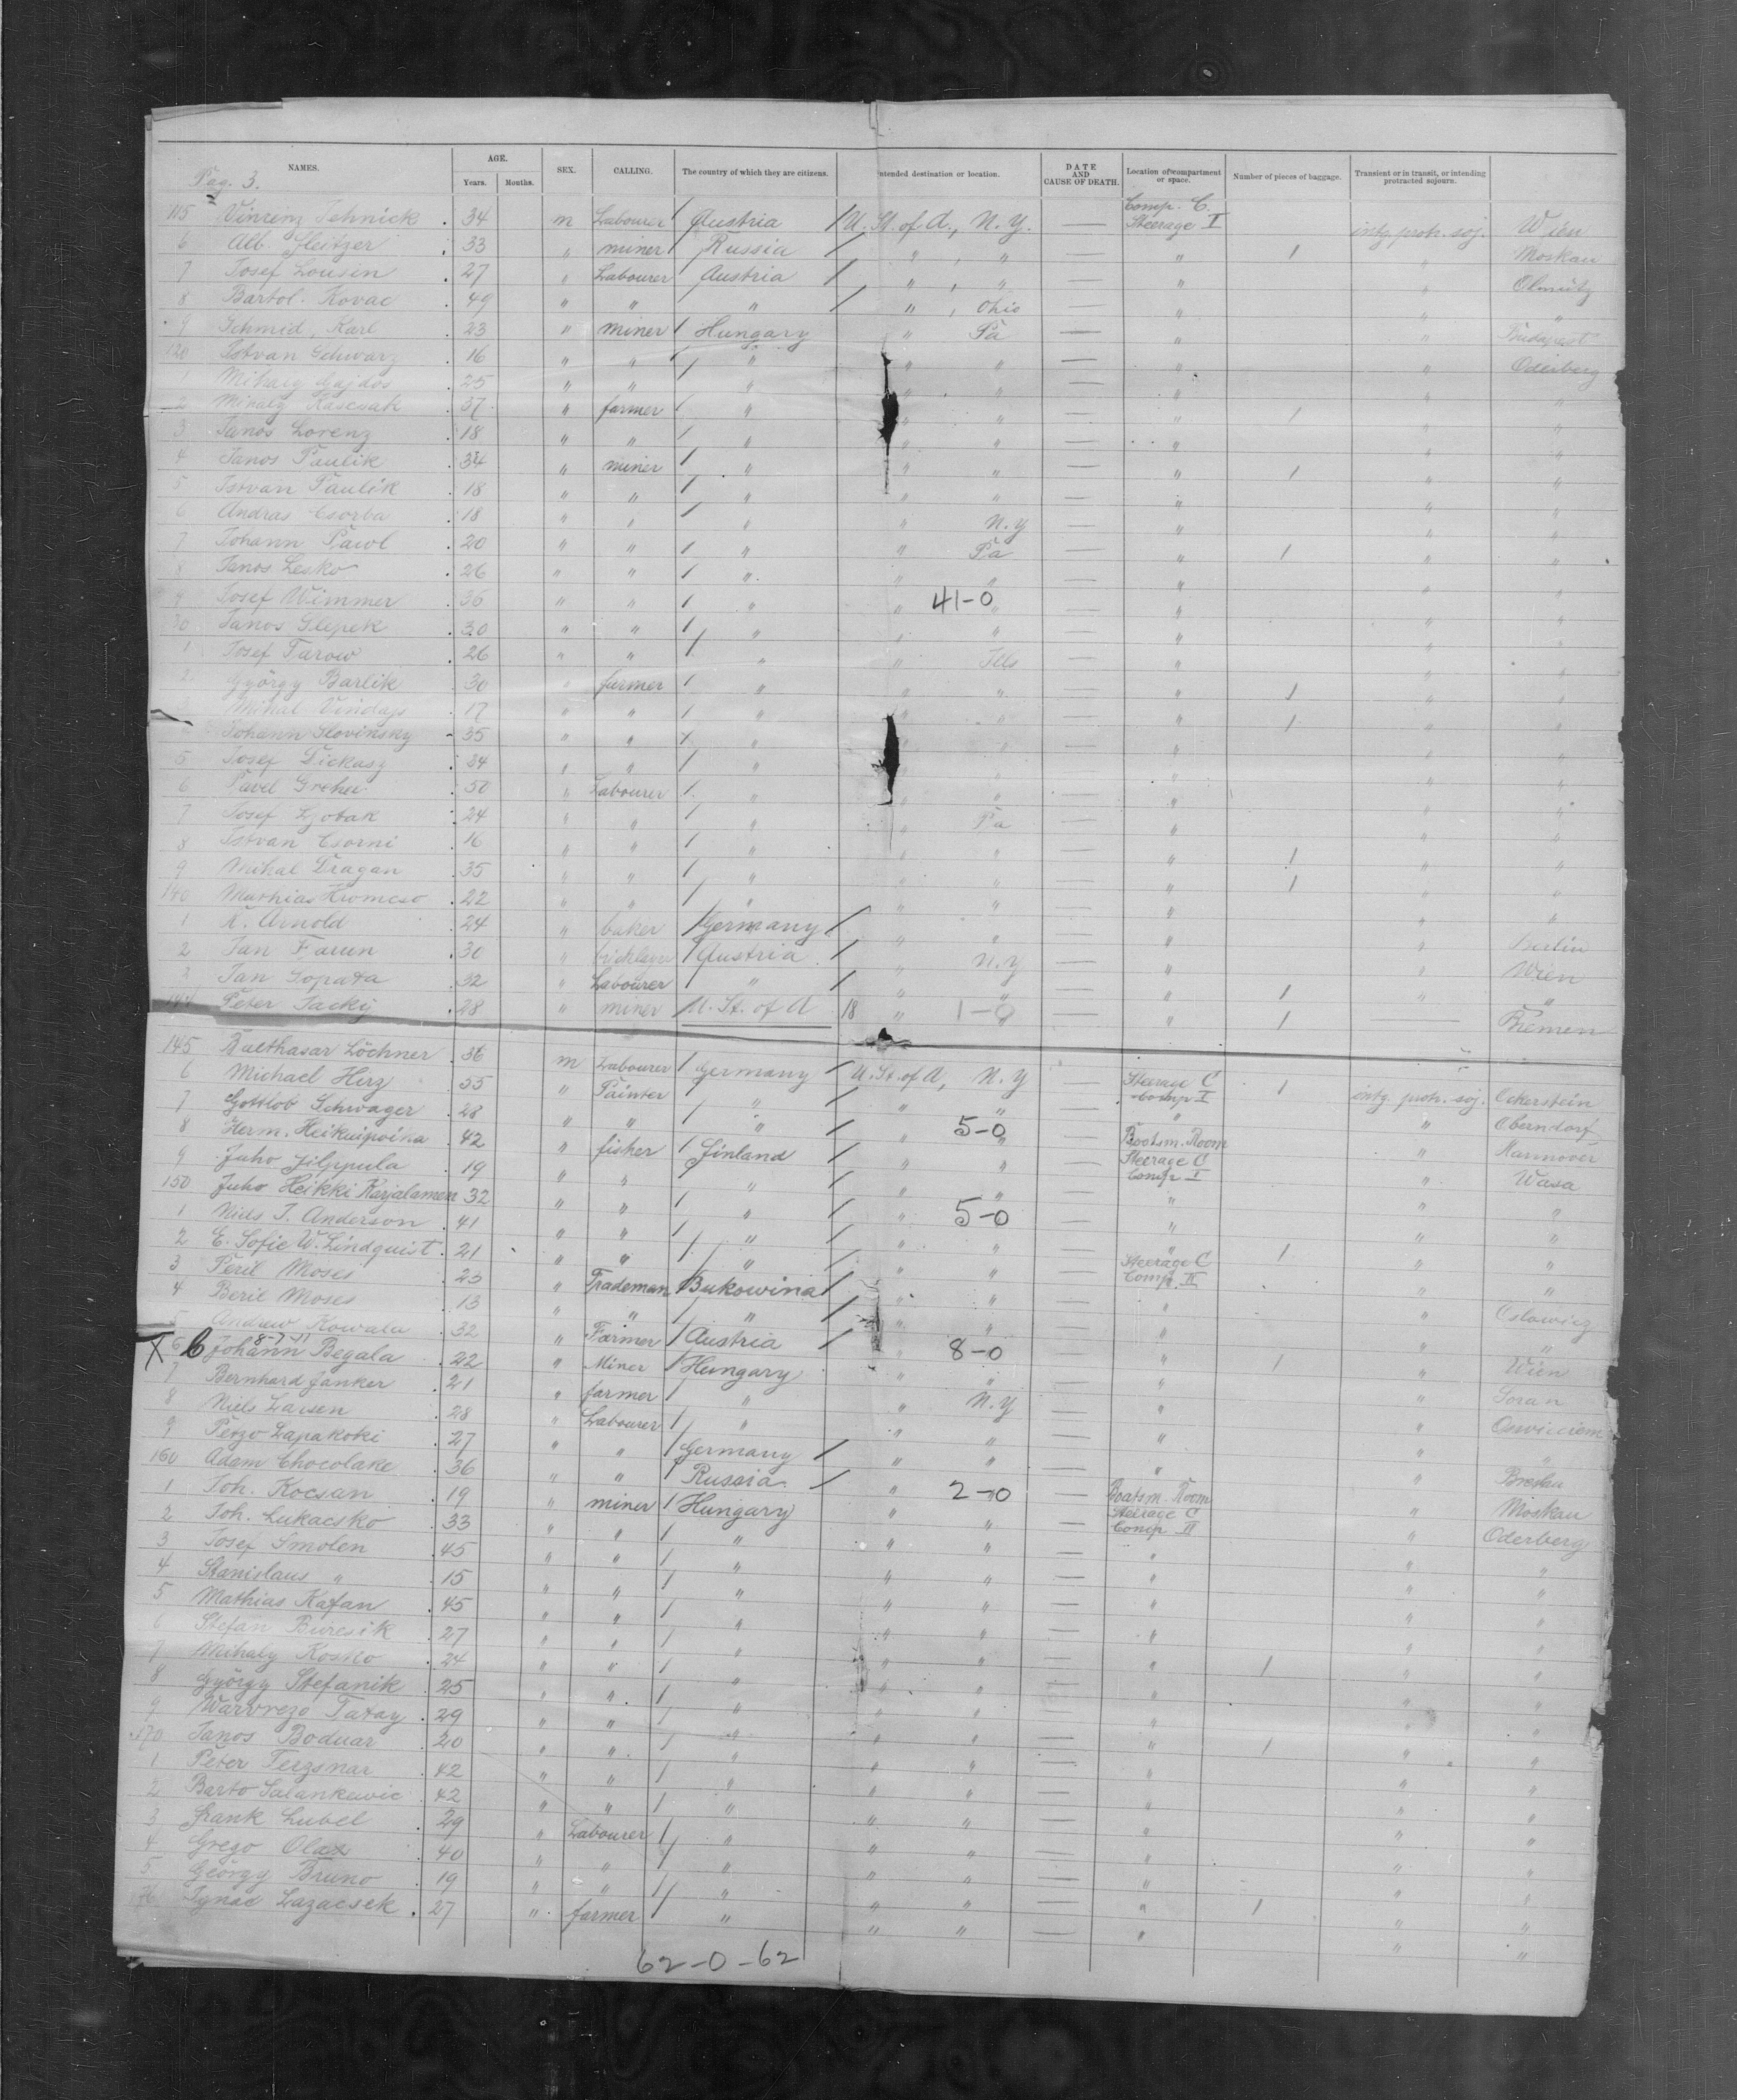 NAMES. AGE. Years. Months. SEX. CALLING. The country of which they are citizens. Intended destination or location. DATE AND CAUSE OF DEATH. Location of compartment or space. Number of pieces of baggage. Transient or in transit, or intending protracted sojourn.
Pag. 3.
115 Vinzenz Jehnick 34 m Labourer Austria U. St. of A., N. Y. — Comp. C. Steerage I intg. protr. soj. Wien
6 Alb. Fleitzer 33 " miner Russia " , " — " 1 " Moskau
7 Josef Lousin 27 " Labourer Austria " , " — " " Olmütz
8 Bartol. Kovac 49 " " " " , Ohio — " " "
9 Schmid, Karl 23 " miner Hungary " Pa — " " Budapest
120 Istvan Schwarz 16 " " " " " — " " Oderberg
1 Mihaly Gajdos 25 " " " " " — " " "
2 Mihaly Kascsak 37 " farmer " " " — " 1 " "
3 Janos Lorenz 18 " " " " " — " " "
4 Janos Paulik 34 " miner " " " — " 1 " "
5 Istvan Paulik 18 " " " " " — " " "
6 Andras Csorba 18 " " " " N. Y — " " "
7 Johann Pawl 20 " " " " Pa — " 1 " "
8 Janos Lesko 26 " " " " " — " " "
9 Josef Wimmer 36 " " " " 41-0 " — " " "
30 Janos Slepek 30 " " " " " — " " "
1 Josef Tarow 26 " " " " Ills — " " "
2 György Barlik 30 " farmer " " " — " 1 " "
Mihal Vindajs 17 " " " " " — " 1 " "
Johann Slovinsky 35 " " " " " — " " "
5 Josef Dickasz 34 " " " " " — " " "
6 Pavel Grehu 50 " Labourer " " " — " " "
7 Josef Lzobak 24 " " " " Pa — " " "
8 Istvan Csorni 16 " " " " " — " 1 " "
9 Mihal Dragan 35 " " " " " — " 1 " "
140 Mathias Kromeso 22 " " " " " — " " "
1 K. Arnold 24 " baker Germany " " — " " Berlin
2 Jan Farun 30 " bricklayer Austria " N. Y — " " Wien
3 Jan Lopata 32 " Labourer " " " — " 1 " "
144 Peter Jackij 28 " miner U. St. of A 18 " 1-0 " — " 1 — Bremen
145 Balthasar Löchner 36 m Labourer Germany U. St. of A, N. Y — Steerage C Comp I 1 intg. protr. soj. Ockerstein
6 Michael Herz 35 " Painter " " " — " " Oberndorf
7 Gottlob Schwager 28 " " " " 5-0 — Bootsm. Room " Hannover
8 Herm. Heikuipoika 42 " fisher Finland " " — Steerage C Comp I " Wasa
9 Juho Jilppula 19 " " " " " — " " "
150 Juho Heikki Karjalamen 32 " " " " 5-0 — " " "
1 Niels J. Anderson 41 " " " " " — " 1 " "
2 E. Sofie W. Lindquist 21 " " " " " — Steerage C Comp. II " "
3 Peril Moses 23 " Trademan Bukowina " " — " " Oslowicz
4 Beril Moses 13 " " " " " — " " "
5 Andrew Kowala 32 " Farmer Austria " 8-0 — " 1 " Wien
X 6 Johann Begala 22 " Miner Hungary " " — " " Soran
7 Bernhard Janker 21 " farmer " " N. Y — " " Oswiciem
8 Niels Larsen 28 " Labourer " " " — " " "
9 Petzo Lapakoki 27 " " Germany " " — " " Breslau
160 Adam Chocolake 36 " " Russia " 2-0 — Boatsm. Room " Moskau
1 Joh. Kocsan 19 " miner Hungary " " — Steerage C Comp II " Oderberg
2 Joh. Lukacsko 33 " " " " " — " " "
3 Josef Smolen 45 " " " " " — " " "
4 Stanislaus " 15 " " " " " — " " "
5 Mathias Kafan 45 " " " " " — " " "
6 Stefan Buresik 27 " " " " " — " " "
7 Mihaly Kosko 24 " " " " " — " 1 " "
8 György Stefanik 25 " " " " " — " " "
9 Wawrezo Tatay 29 " " " " " — " " "
170 Janos Boduar 20 " " " " " — " 1 " "
1 Peter Terzsnar 42 " " " " " — " " "
2 Barto Salankewic 42 " " " " " — " " "
3 Frank Lubel 29 " Labourer " " " — " " "
4 Grego Olax 40 " " " " " — " " "
5 György Bruno 19 " " " " " — " 1 " "
76 Ignac Lazacsek 27 " farmer " " " — " " "
62-0-62